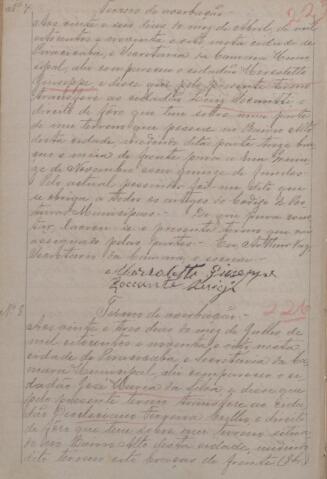 Nº 7 Termo de averbação
22
Aos vinte e seis dias do mez de Abril, de mil
oitocentos e noventa e oito, nesta cidade de
Piracicaba, e Secretaria da Camara Muni-
cipal, ahi compareceu o cidadão Morzoletto
Giuseppe e disse que pelo presente termo
transfere ao cidadão Luiz Zoccante o
direito de fôro que tem sobre uma parte
de um terreno que possue no Bairro Alto
desta cidade, medindo dita parte treze bra-
ças e meia de frente para a rua Quin-
ze de Novembro com quinze de fundos.
Pelo actual possuidor foi me dito que
se obriga a todos os artigos do Codigo de Pos-
turas Municipaes. De que para cons-
tar, lavrou-se o presente termo que vai
assignado pelas partes. Eu, Arthur Vaz
Secretario da Camara, o escrevi
Morzoletto Giuseppe
Zoccante Luigi
Nº 8 Termo de averbação
226
Aos vinte e tres dias do mez de Julho de
mil oitocentos e noventa e oito, nesta
cidade de Piracicaba e Secretaria da Ca-
mara Municipal, ahi compareceu o ci-
dadão José Maria da Silva e disse que
pelo presente termo transfere ao cida-
dão Deocleciano Teixeira Mello, o direito
de fôro que tem sobre um terreno situa-
do no Bairro Alto desta cidade, medindo
dito terreno oito braças de frente (8br)